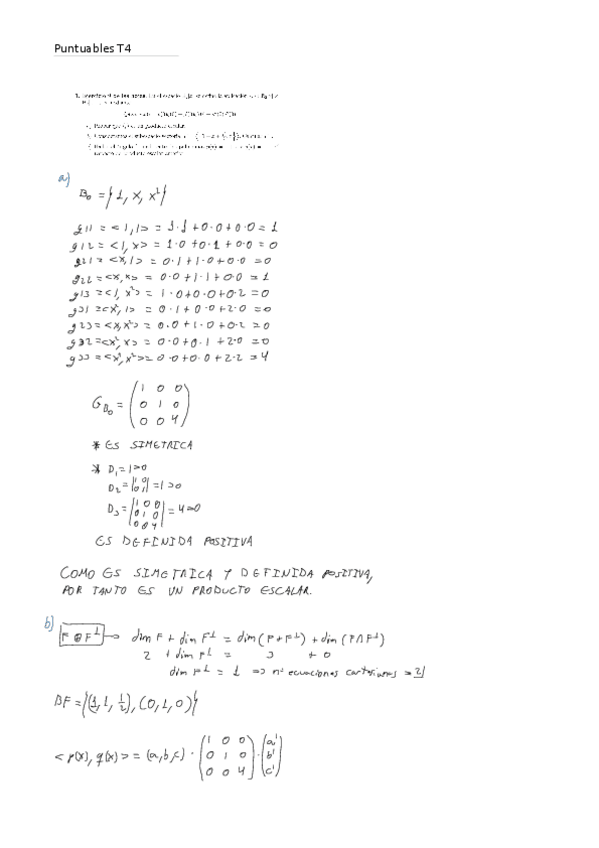 Puntuables T4
a)
B₀ = {1, x, x²}
g11 = <1,1> = 1·1+0·0+0·0 = 1
g12 = <1,x> = 1·0+0·1+0·0 = 0
g21 = <x,1> = 0·1+1·0+0·0 = 0
g22 = <x,x> = 0·0+1·1+0·0 = 1
g13 = <1,x²> = 1·0+0·0+0·2 = 0
g31 = <x²,1> = 0·1+0·0+2·0 = 0
g23 = <x,x²> = 0·0+1·0+0·2 = 0
g32 = <x²,x> = 0·0+0·1+2·0 = 0
g33 = <x²,x²> = 0·0+0·0+2·2 = 4
G_B₀ = (1 0 0
0 1 0
0 0 4)
* ES SIMETRICA
* D₁ = 1>0
D₂ = |1 0
0 1| = 1>0
D₃ = |1 0 0
0 1 0
0 0 4| = 4>0
ES DEFINIDA POSITIVA
COMO ES SIMETRICA Y DEFINIDA POSITIVA,
POR TANTO ES UN PRODUCTO ESCALAR.
b)
F ⊕ F⊥ → dim F + dim F⊥ = dim(F+F⊥) + dim(F∩F⊥)
2 + dim F⊥ = 3 + 0
dim F⊥ = 1 => nº ecuaciones cartesianas = 2
BF = {(1, 1, 1/2), (0, 1, 0)}
<p(x), q(x)> = (a,b,c) · (1 0 0
0 1 0
0 0 4) · (a'
b'
c')